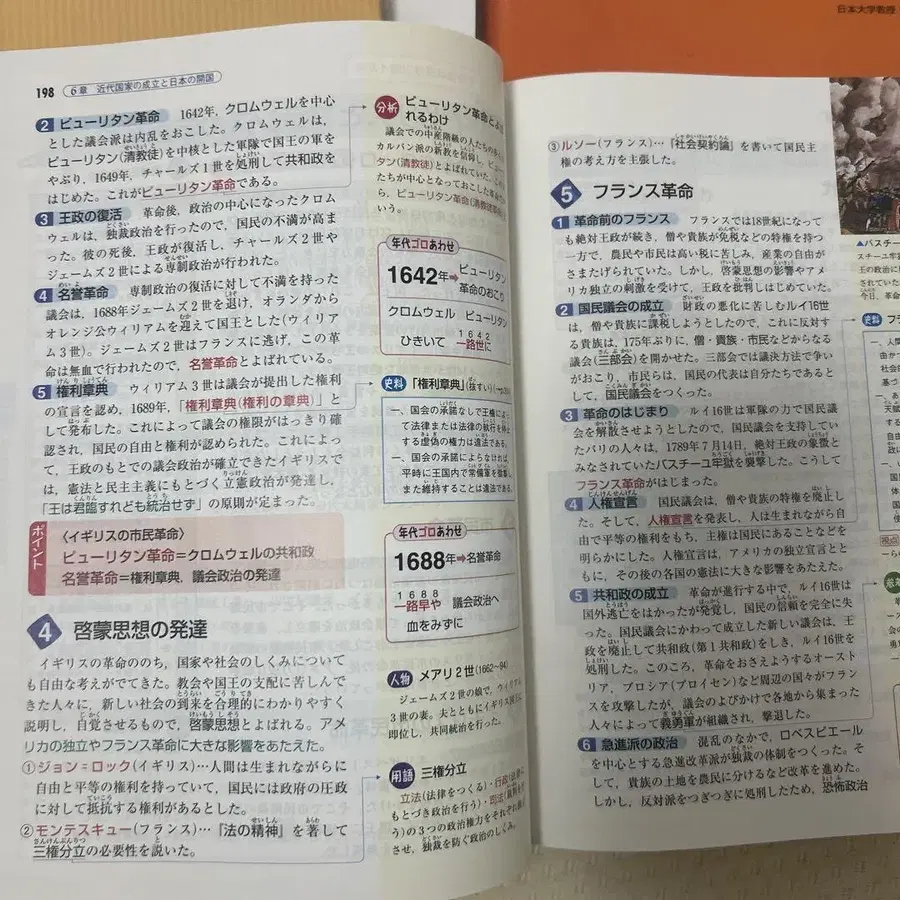 198 6章 近代国家の成立と日本の開国
2 ピューリタン革命 1642年，クロムウェルを中心
とした議会派は内乱をおこした。クロムウェルは，
ピューリタン(清教徒)を中核とした軍隊で国王の軍を
やぶり，1649年，チャールズ1世を処刑して共和政を
はじめた。これがピューリタン革命である。
3 王政の復活 革命後，政治の中心になったクロム
ウェルは，独裁政治を行ったので，国民の不満が高ま
った。彼の死後，王政が復活し，チャールズ2世や
ジェームズ2世による専制政治が行われた。
4 名誉革命 専制政治の復活に対して不満を持った
議会は，1688年ジェームズ2世を退け，オランダから
オレンジ公ウィリアムを迎えて国王とした(ウィリア
ム3世)。ジェームズ2世はフランスに逃げ，この革
命は無血で行われたので，名誉革命とよばれている。
5 権利章典 ウィリアム3世は議会が提出した権利
の宣言を認め，1689年，「権利章典(権利の章典)」と
して発布した。これによって議会の権限がはっきり確
認され，国民の自由と権利が認められた。これによっ
て，王政のもとでの議会政治が確立できたイギリスで
は，憲法と民主主義にもとづく立憲政治が発達し，
「王は君臨すれども統治せず」の原則が定まった。
ポイント
〈イギリスの市民革命〉
ピューリタン革命＝クロムウェルの共和政
名誉革命＝権利章典，議会政治の発達
4 啓蒙思想の発達
イギリスの革命ののち，国家や社会のしくみについて
も自由な考えがでてきた。教会や国王の支配に苦しんで
きた人々に，新しい社会の到来を合理的にわかりやすく
説明し，自覚させるもので，啓蒙思想とよばれる。アメ
リカの独立やフランス革命に大きな影響をあたえた。
①ジョン＝ロック(イギリス)…人間は生まれながらに
自由と平等の権利を持っていて，国民には政府の圧政
に対して抵抗する権利があるとした。
②モンテスキュー(フランス)…「法の精神」を著して
三権分立の必要性を説いた。
分析 ピューリタン革命とよば
れるわけ
議会での中産階級の人たちの多くは
カルバン派の新教を信仰し，ピューリ
タン(清教徒)とよばれていた。
たちが中心となっておこした革命
ら，ピューリタン革命(清教徒革命)と
いう。
年代ゴロあわせ
1642年➡ピューリタン
革命のおこり
クロムウェル ピューリタン
ひきいて 一路世に
1642
史料 「権利章典」(抜すい)
一、国会の承認なしで王権によっ
て法律または法律の執行を停止
する虚偽の権力は違法である。
一、国会の承諾によらなければ，
平時に王国内で常備軍を徴集し
また維持することは違法である。
年代ゴロあわせ
1688年➡名誉革命
1688
一路早や 議会政治へ
血をみずに
人物 メアリ2世(1662〜94)
ジェームズ2世の娘で，ウィリアム
3世の妻。夫とともにイギリス国王に
即位し，共同統治を行った。
用語 三権分立
立法(法律をつくる)・行政(法律に
もとづき政治を行う)・司法(裁判を行
う)の3つの政治権力をそれぞれ独立
させ，独裁を防ぐ政治のしくみ。
日本大学教授
③ルソー(フランス)…「社会契約論」を書いて国民主
権の考え方を主張した。
5 フランス革命
1 革命前のフランス フランスでは18世紀になって
も絶対王政が続き，僧や貴族が免税などの特権を持つ
一方で，農民や市民は高い税に苦しみ，産業の自由が
さまたげられていた。しかし，啓蒙思想の影響やアメ
リカ独立の刺激を受けて，王政を批判しはじめていた。
2 国民議会の成立 財政の悪化に苦しむルイ16世
は，僧や貴族に課税しようとしたので，これに反対す
る貴族は，175年ぶりに，僧・貴族・市民などからなる
議会(三部会)を開かせた。三部会では議決方法で争い
がおこり，市民らは，国民の代表は自分たちであると
して，国民議会をつくった。
3 革命のはじまり ルイ16世は軍隊の力で国民議
会を解散させようとしたので，国民議会を支持してい
たパリの人々は，1789年7月14日，絶対王政の象徴と
みなされていたバスチーユ牢獄を襲撃した。こうして
フランス革命がはじまった。
4 人権宣言 国民議会は，僧や貴族の特権を廃止し
た。そして，人権宣言を発表し，人は生まれながら自
由で平等の権利をもち，主権は国民にあることなどを
明らかにした。人権宣言は，アメリカの独立宣言とと
もに，その後の各国の憲法に大きな影響をあたえた。
5 共和政の成立 革命が進行する中で，ルイ16世は
国外逃亡をはかったが発覚し，国民の信頼を完全に失
った。国民議会にかわって成立した新しい議会は，王
政を廃止して共和政(第1共和政)をしき，ルイ16世を
処刑した。このころ，革命をおさえようするオースト
リア，プロシア(プロイセン)など周辺の国々がフラン
スを攻撃したが，議会のよびかけで各地から集まった
人々によって義勇軍が組織され，撃退した。
6 急進派の政治 混乱のなかで，ロベスピエール
を中心とする急進改革派が独裁の体制をつくった。そ
して，貴族の土地を農民に分けるなど改革を進めた。
しかし，反対派をつぎつぎに処刑したため，恐怖政治
▲バスチー
史料